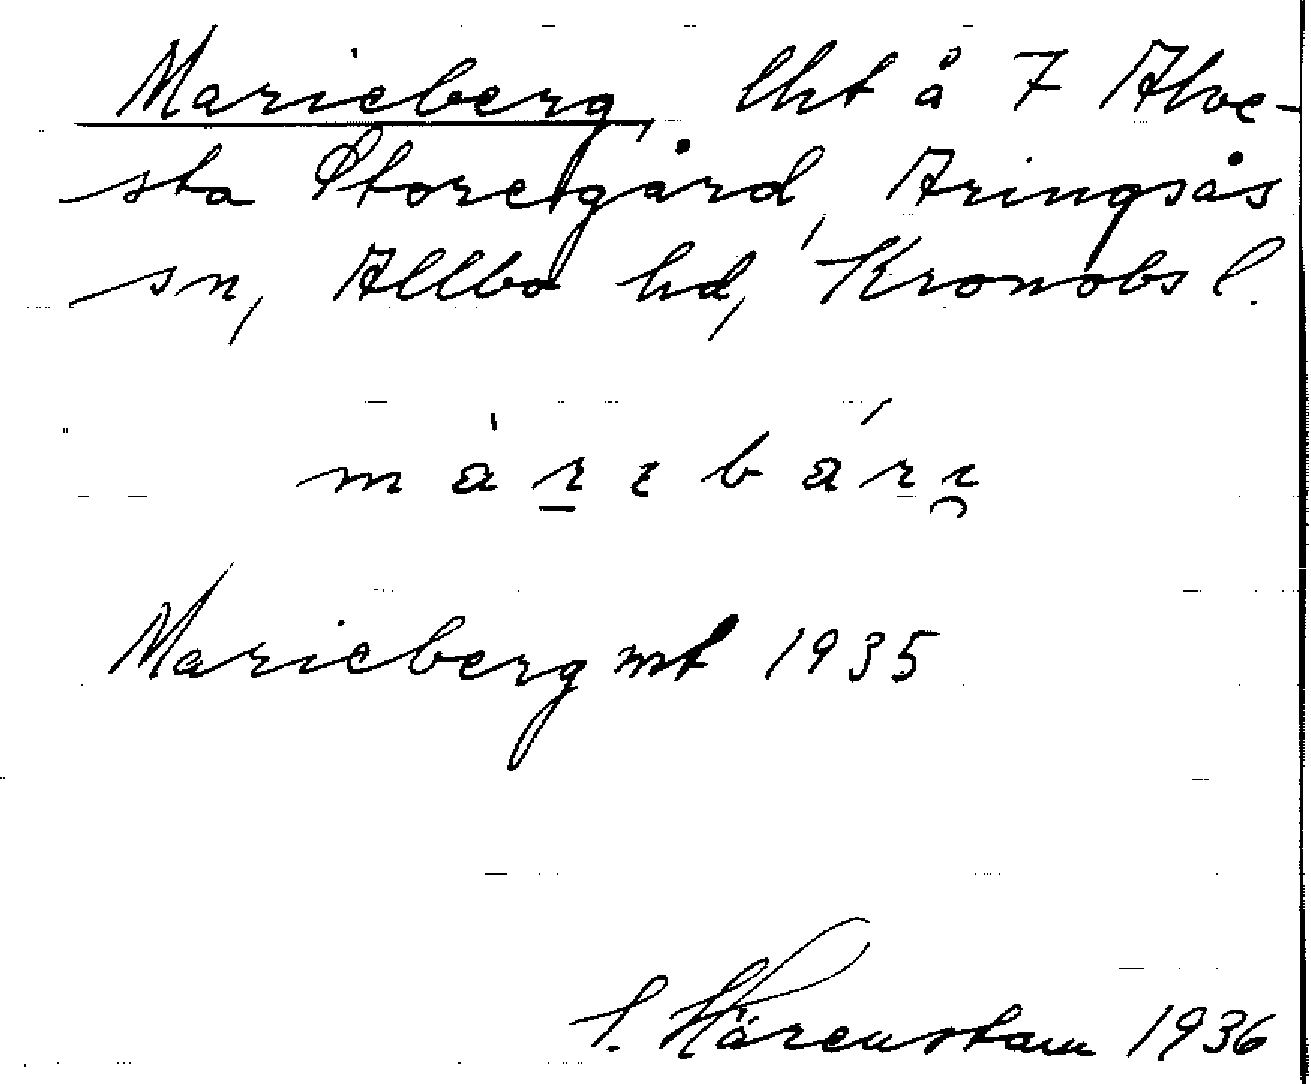 Marieberg, lht å 7 Alve-
sta Storegård, Aringsås
sn, Allbo hd, Kronobs l.
Marieberg mt 1935
S. Härenstam 1936